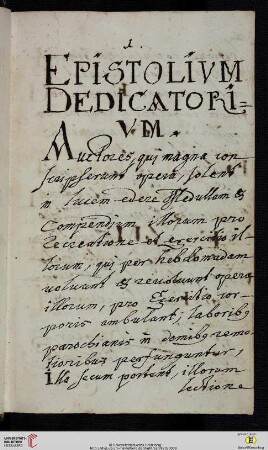 1.
EPISTOLIVM
DEDICATORI=
VM.
Auctores, qui magna con-
scripserunt opera, solent
in lucem edere Medullam &
Compendium illorum pro
recreatione et exercitio il-
lorum, qui per hebdomadam
volvunt & revolvunt opera
illorum, pro Exercitio cor-
poris ambulant, laboribq
parochianis in domibq remo-
tioribus perfunguntur,
Illa secum portent, illorum
lectione
UNIVERSITÄTS-
BIBLIOTHEK
HEIDELBERG